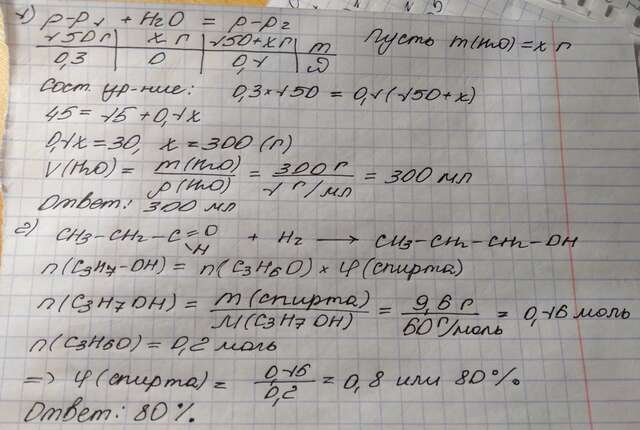 1) р-р1 + H2O = р-р2
150 г | x г | 150+x г | m
0,3 | 0 | 0,1 | ω
Пусть m(H2O) = x г
Сост. ур-ние: 0,3 × 150 = 0,1(150 + x)
45 = 15 + 0,1x
0,1x = 30, x = 300 (г)
V(H2O) = m(H2O) / ρ(H2O) = 300 г / 1 г/мл = 300 мл
Ответ: 300 мл
2) CH3-CH2-C=O
H + H2 ⟶ CH3-CH2-CH2-OH
n(C3H7-OH) = n(C3H6O) × φ(спирта)
n(C3H7OH) = m(спирта) / M(C3H7OH) = 9,6 г / 60 г/моль = 0,16 моль
n(C3H6O) = 0,2 моль
=> φ(спирта) = 0,16 / 0,2 = 0,8 или 80%.
Ответ: 80%.